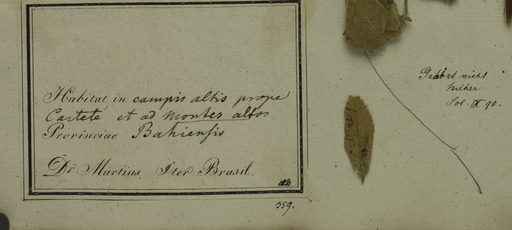 Habitat in campis altis prope
Cartete et ad montes altos
Provinciae Bahiensis
Dr Martius Iter Brasil.
359.
Gehört nicht
hieher
Sol. IX 90.